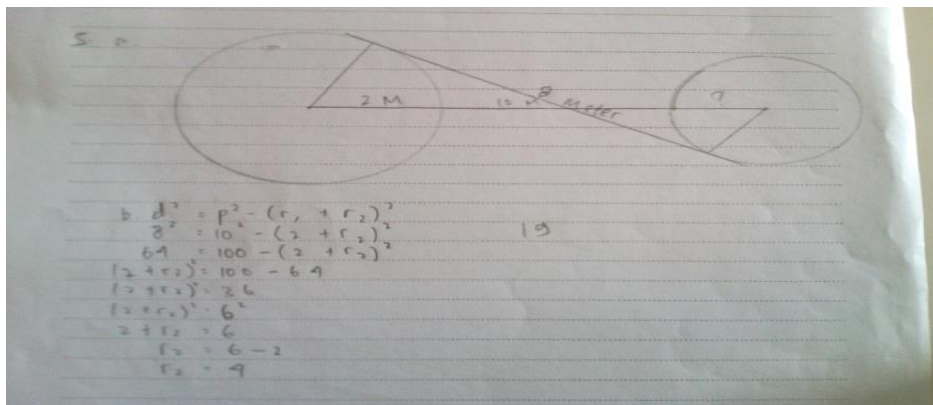 5. a.
2 M 10 M 8 Meter ?
b. d² = p² - (r₁ + r₂)²
8² = 10² - (2 + r₂)²
64 = 100 - (2 + r₂)²
(2 + r₂)² = 100 - 64
(2 + r₂)² = 36
(2 + r₂)² = 6²
2 + r₂ = 6
r₂ = 6 - 2
r₂ = 4
19